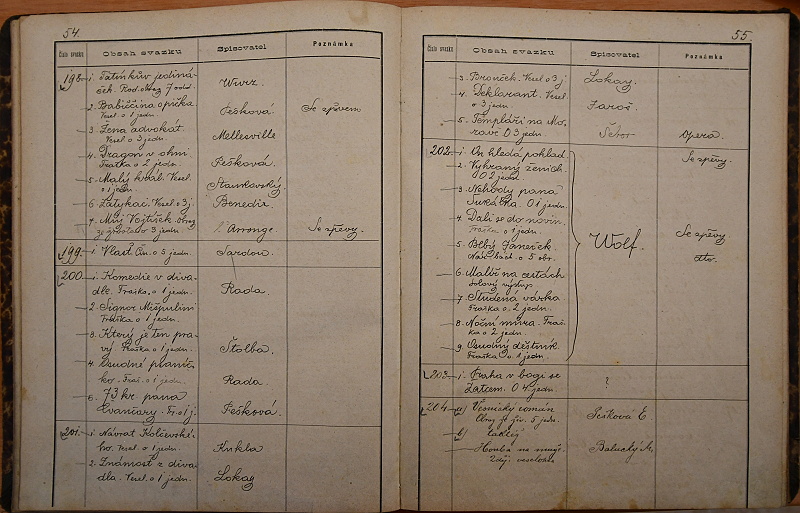 54.
Číslo svazku Obsah svazku Spisovatel Poznámka
198 1. Tatínkův jediná-
ček. Rod. obraz 7 odd. Wurz.
2. Babiččina opička
Vesel. o 1 jedn. Pešková Se zpěvem
3. Žena advokát.
Vesel. o 3 jedn. Mellesville
4. Dragon v ohni
Fraška o 2 jedn. Pešková.
5. Malý král. Vesel.
o 1 jedn. Stankovský.
6. Zatykač. Vesel. o 3 j. Benedix.
7. Můj Vojtíšek. Obraz
ze života o 3 jedn. L'Arronge. Se zpěvy.
199. 1. Vlasť. Čin. o 5 jedn. Sardou.
200. 1. Komedie v diva-
dle. Fraška. o 1 jedn. Rada.
2. Signor Mispulini
Fraška o 1 jedn.
3. Který je ten pra-
vý. Fraška o 1 jedn. Štolba.
4. Osudné
Fraš. o 1 jedn. Rada
5. 73 kr. pana
Fr. o 1 j. Pešková.
201. 1. Návrat
ho. Vesel. o 1 jedn. Kukla
2. Známost z diva-
dla. Vesel. o 1 jedn. Lokay
55.
Číslo svazku Obsah svazku Spisovatel Poznámka
3. Vesel o 3 j. Lokay.
4. Deklarant. Vesel.
o 3 jedn. Jaroš.
5. Templáři na Mo-
ravě O 3 jedn. Šebor Opera.
202. 1. On hledá poklad. Se zpěvy.
2. Vybraný ženich.
O 2 jedn.
3. Nehody pana
O 1 jedn.
4. Dali se do novin.
Fraška o 1 jedn. Wolf. Se zpěvy
5. Blbý Janeček.
o 5 obr. dto.
6. Malíř na cestách
Solový výstup
7. Studená várka
Fraška o 2. jedn.
8. Noční můra. Fraš-
ka o 2 jedn.
9. Osudný deštník.
Fraška o 1 jedn.
203 1. Praha v boji se
Žatcem. O 4 jedn. ?
204 a)
Obraz 5 jedn. Pešková E.
b)
Houba na
2 děj. veselohra Balucký M.